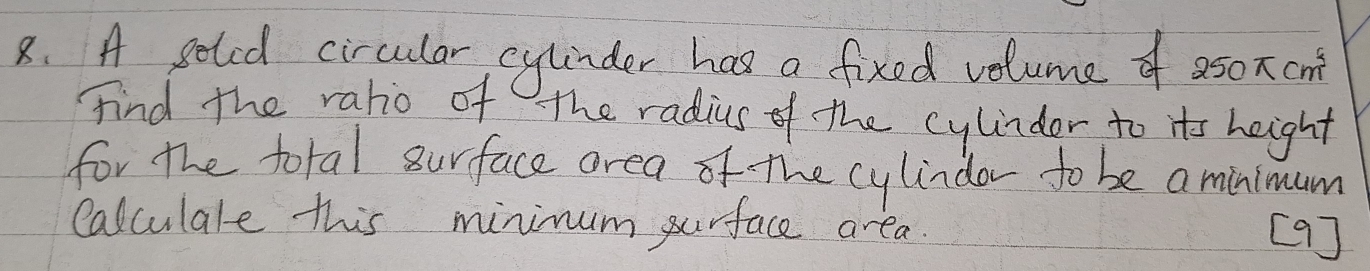 8. A solid circular cylinder has a fixed volume of 250π cm³
Find the ratio of the radius of the cylinder to its height
for the total surface area of the cylinder to be a minimum
Calculate this minimum surface area. [9]